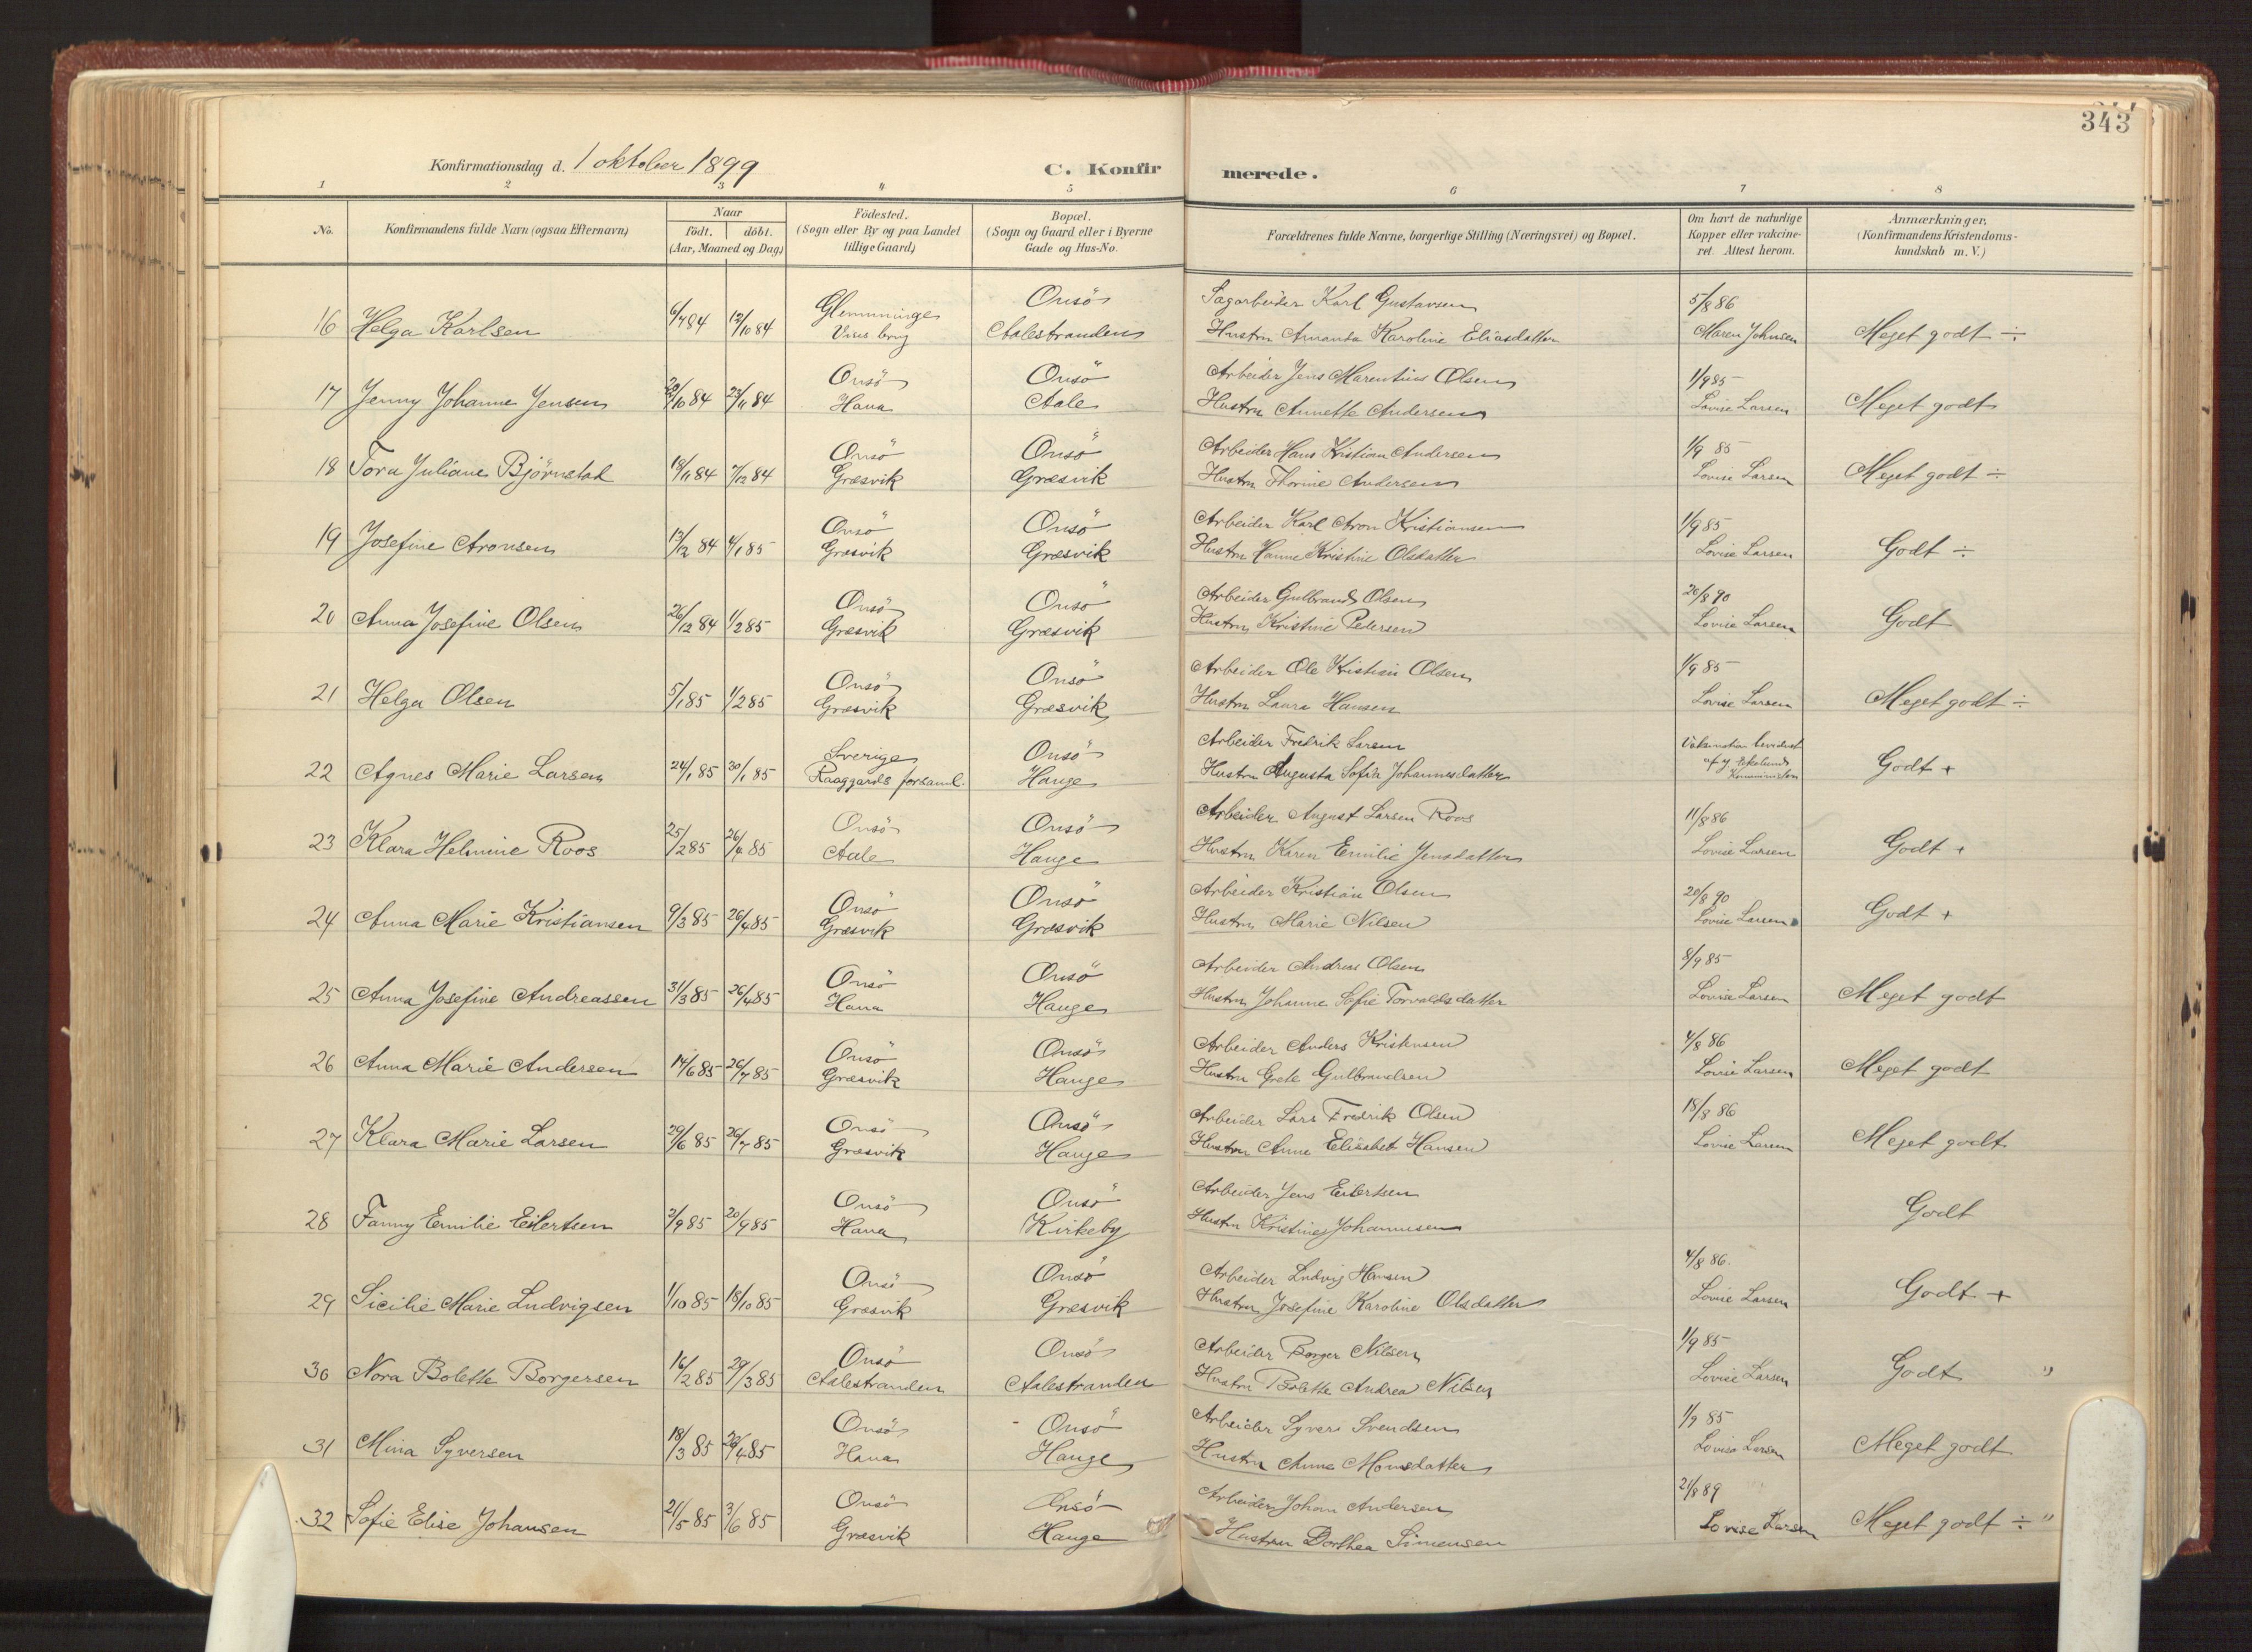 343
Konfirmationsdag d. 1 oktober 1899
C. Konfirmerede.
1 2 3 4 5 6 7 8
No.
Konfirmandens fulde Navn (ogsaa Efternavn)
Naar
født. døbt.
(Aar, Maaned og Dag)
Fødested.
(Sogn eller By og paa Landet
tillige Gaard)
Bopæl.
(Sogn og Gaard eller i Byerne
Gade og Hus-No.
Forældrenes fulde Navne, borgerlige Stilling (Næringsvei) og Bopæl.
Om havt de naturlige
Kopper eller vakcine-
ret. Attest herom.
Anmærkninger.
(Konfirmandens Kristendoms-
kundskab m. V.)
Glemminge Onsö Sagarbeider Karl Gustavsen 5/8 86
16 Helga Karlsen 6/7 84 12/10 84 brug Aalestranden Hustru Amanda Karoline Eliasdatter Maren Johnsen Meget godt ÷
Onsö Onsö Arbeider Jens Marentius Olsen 1/9 85
17 Jenny Johanne Jensen /10 84 23/11 84 Hana Aale Hustru Annette Andersen Lovise Larsen Meget godt
Onsö Onsö Arbeider Hans Kristian Andersen 1/9 85
18 Tora Juliane Björnstad 18/11 84 7/12 84 Græsvik Græsvik Hustru Thorine Andersen Lovise Larsen Meget godt ÷
Onsö Onsö Arbeider Karl Aron Kristiansen 1/9 85
19 Josefine Aronsen 13/12 84 4/1 85 Græsvik Græsvik Hustru Hanne Kristine Olsdatter Lovise Larsen Godt ÷
Onsö Onsö Arbeider Gulbrand Olsen 20/8 90
20 Anna Josefine Olsen 26/12 84 1/2 85 Græsvik Græsvik Hustru Kristine Pedersen Lovise Larsen Godt
Onsö Onsö Arbeider Ole Kristian Olsen 1/9 85
21 Helga Olsen 5/1 85 1/2 85 Græsvik Græsvik Hustru Laura Hansen Lovise Larsen Meget godt ÷
Sverige Onsö Arbeider Fredrik Larsen
22 Agnes Marie Larsen 24/1 85 30/1 85 Raaggards forsaml. Hauge Hustru Augusta Sofia Johannesdatter af Godt +
Onsö Onsö Arbeider August Larsen Roos 11/8 86
23 Klara Helmine Roos 25/2 85 26/4 85 Aale Hauge Hustru Karen Emilie Jensdatter Lovise Larsen Godt +
Onsö Onsö Arbeider Kristian Olsen 20/8 90
24 Anna Marie Kristiansen 9/3 85 26/4 85 Græsvik Græsvik Hustru Marie Nilsen Lovise Larsen Godt +
Onsö Onsö Arbeider Andreas Olsen 8/9 85
25 Anna Josefine Andreassen 31/3 85 26/4 85 Hana Hauge Hustru Johanne Sofie Torvaldsdatter Lovise Larsen Meget godt
Onsö Onsö Arbeider Anders Kristensen 4/8 86
26 Anna Marie Andersen 14/6 85 26/7 85 Græsvik Hauge Hustru Grete Gulbrandsen Lovise Larsen Meget godt
Onsö Onsö Arbeider Lars Fredrik Olsen 18/8 86
27 Klara Marie Larsen 29/6 85 26/7 85 Græsvik Hauge Hustru Anne Elisabet Hansen Lovise Larsen Meget godt
Onsö Onsö Arbeider Jens Eilertsen
28 Fanny Emilie Eilertsen 2/9 85 20/9 85 Hana Kirkeby Hustru Kristine Johannesen Godt
Onsö Onsö Arbeider Ludvig Hansen 4/8 86.
29 Sicilie Marie Ludvigsen 1/10 85 18/10 85 Græsvik Græsvik Hustru Josefine Karoline Olsdatter Lovise Larsen Godt +
Onsö Onsö Arbeider Borger Nilsen 1/9 85
30 Nora Bolette Borgersen 16/2 85 29/3 85 Aalestranden Aalestranden Hustru Bolette Andrea Nilsen Lovise Larsen Godt "
Onsö Onsö Arbeider Syver Svendsen 1/9 85
31 Mina Syversen 18/3 85 26/4 85 Hana Hauge Hustru Anne Monsdatter Lovise Larsen Meget godt
Onsö Onsö Arbeider Johan Andersen 21/8 89
32 Sofie Elise Johansen 21/5 85 3/6 85 Græsvik Hauge Hustru Dorthea Simensen Lovise Larsen Meget godt ÷ "